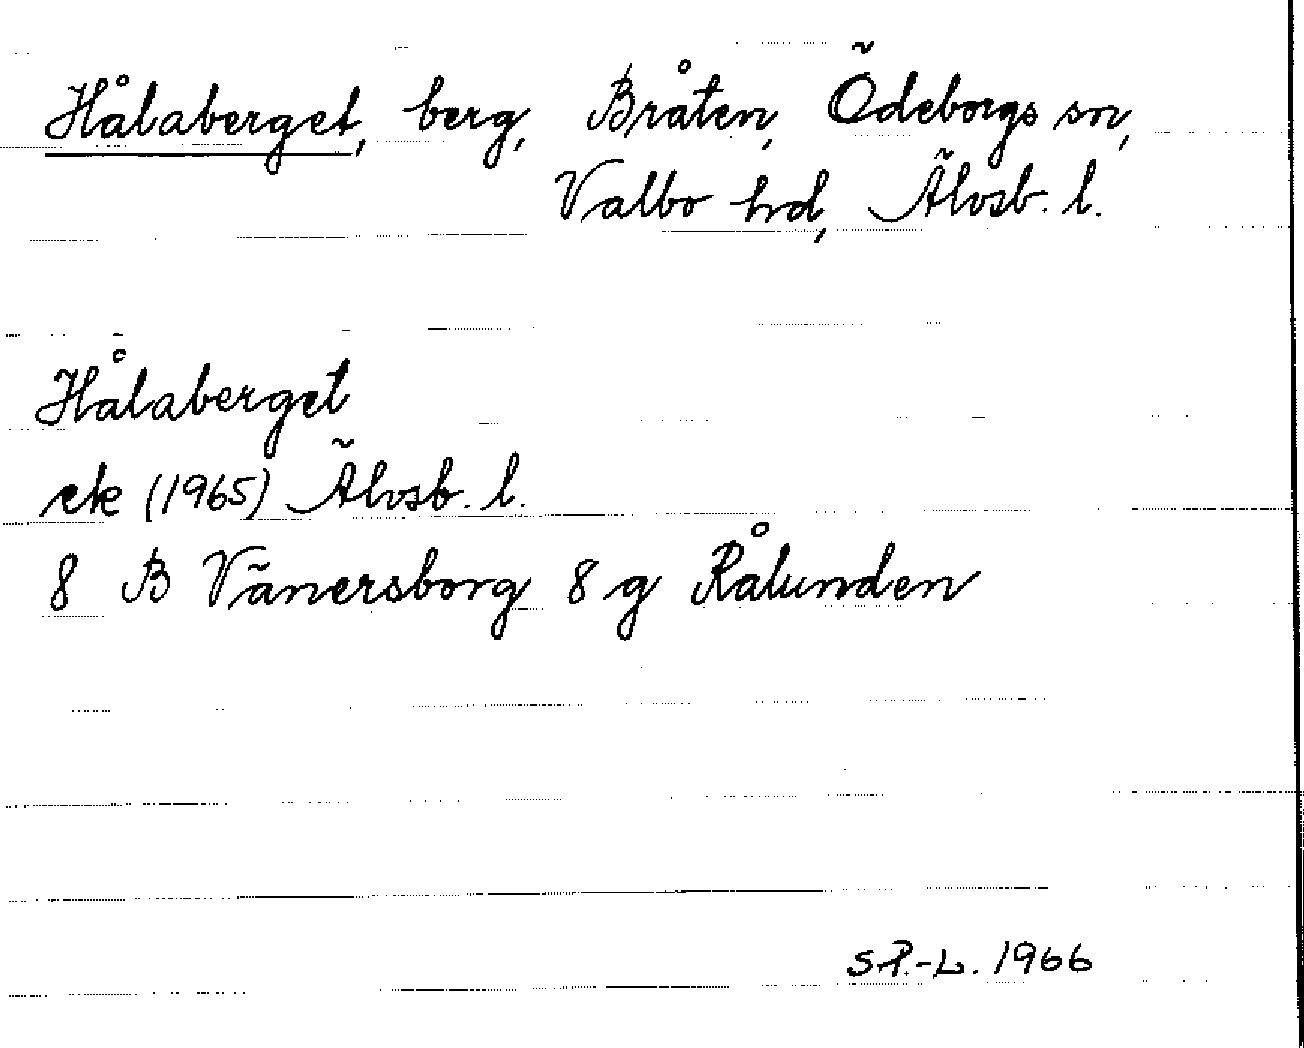 Hålaberget, berg, Bråten, Ödeborgs sn,
Valbo hd, Älvsb. l.
Hålaberget
ek (1965) Älvsb. l.
8 B Vänersborg 8 g Rålunden
S P.-L. 1966